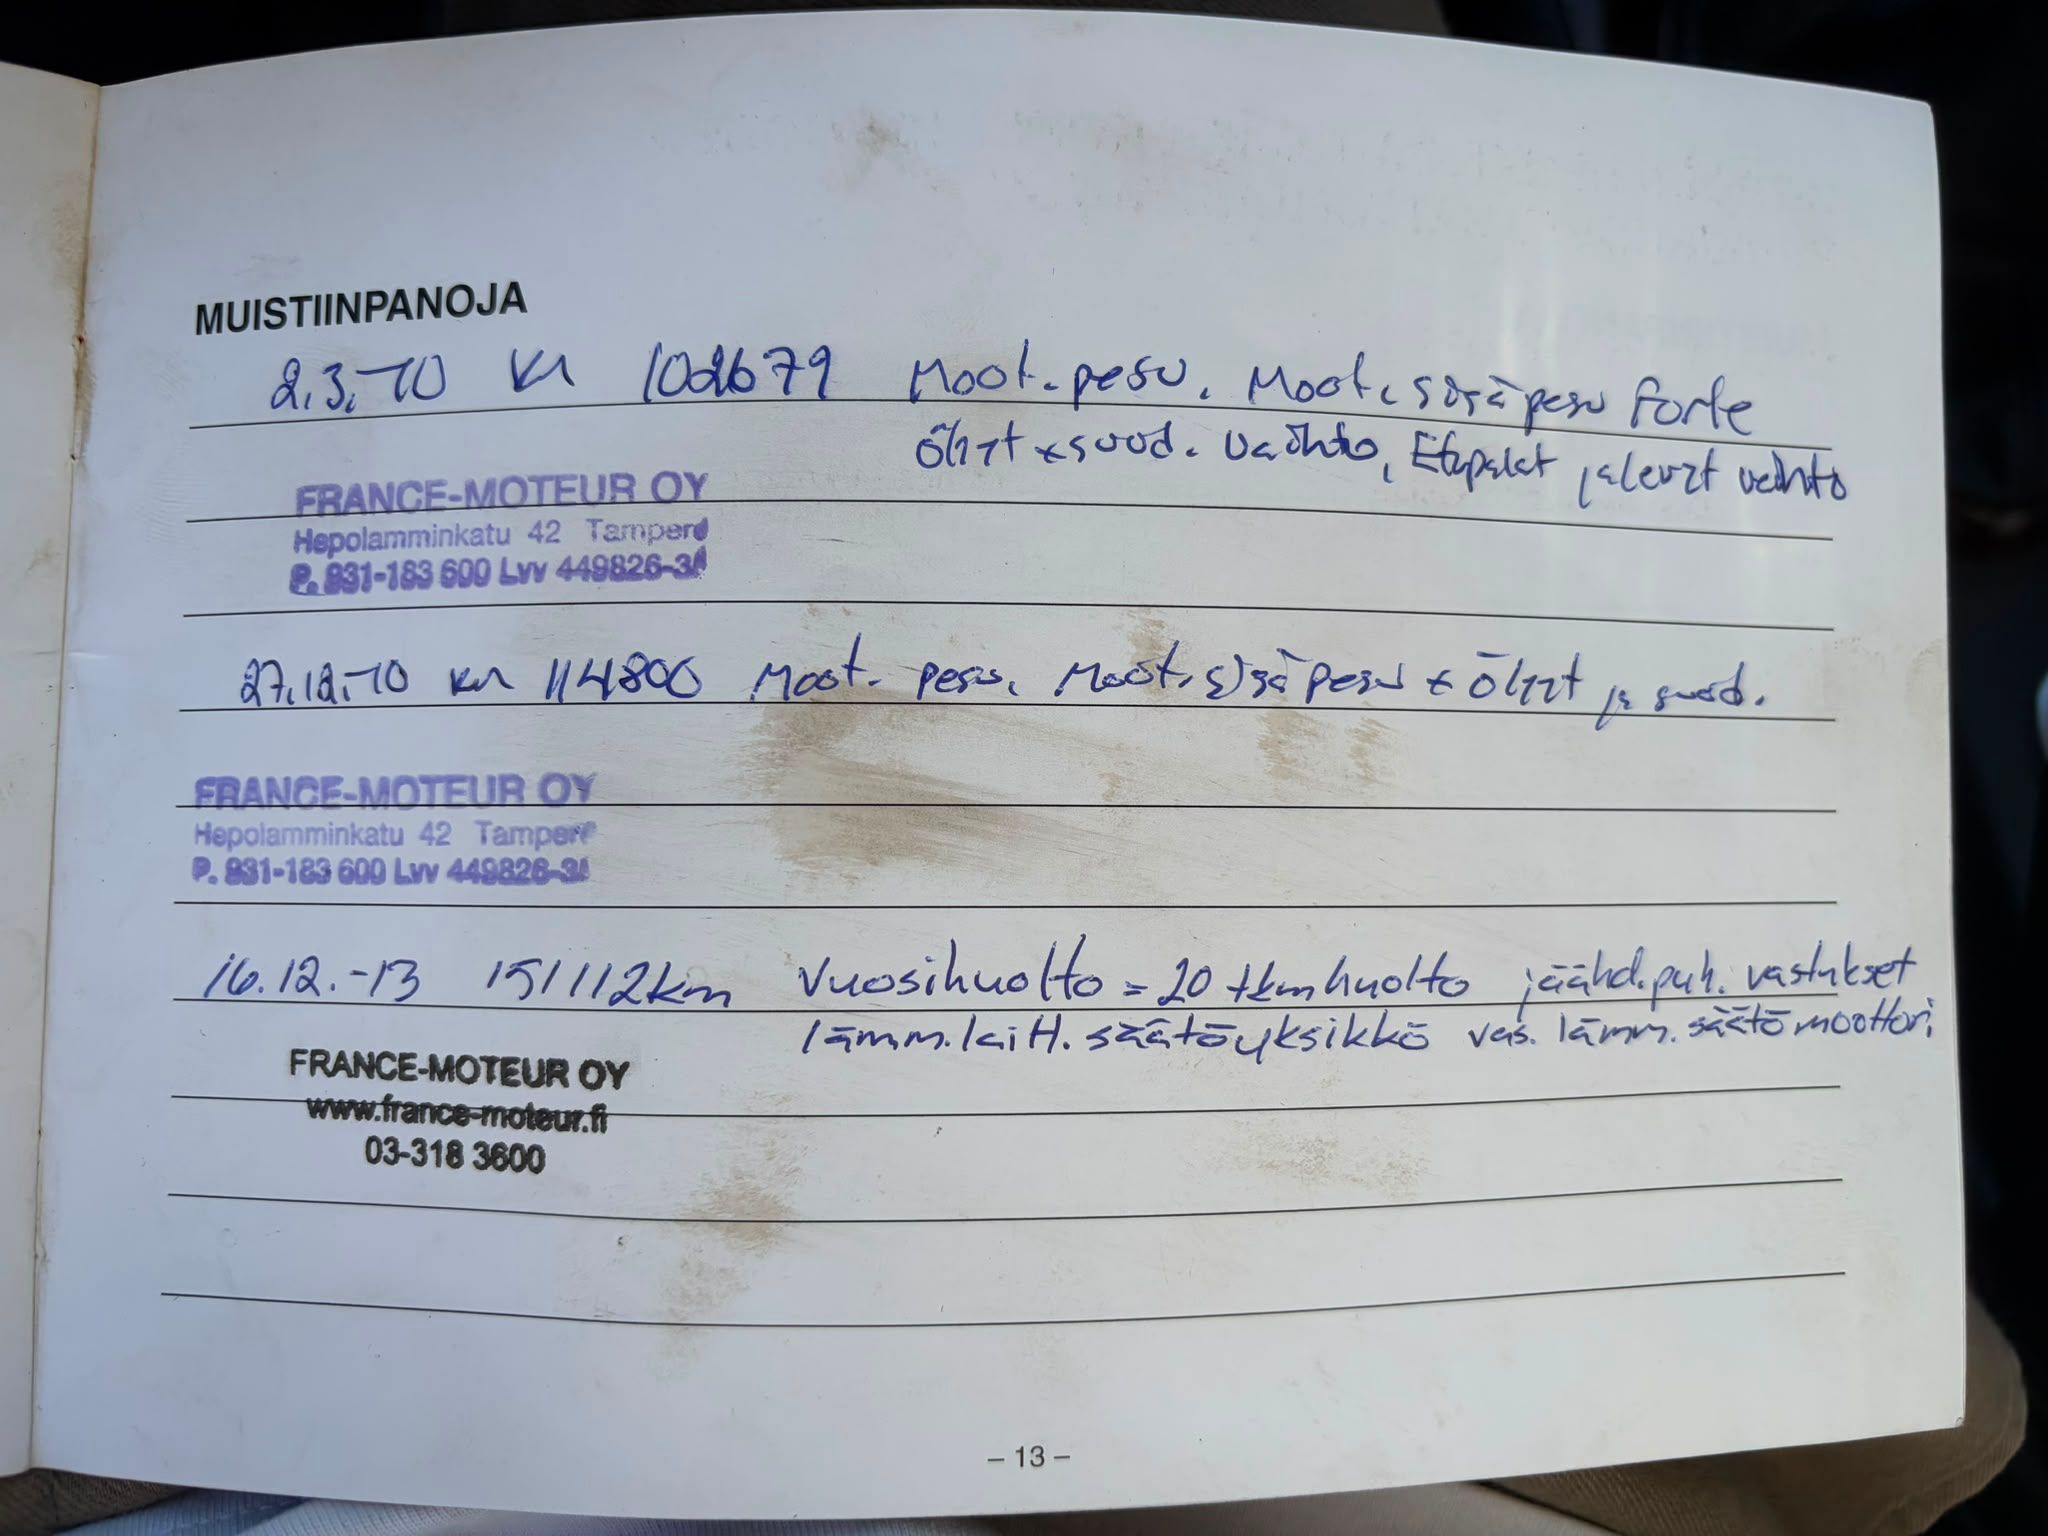 MUISTIINPANOJA
2.3.-10 km 102679 Moot.pesu. Moot.sisäpesu Forte
Öljyt + suod. vaihto, Etupalat ja levyt vaihto
FRANCE-MOTEUR OY
Hepolamminkatu 42 Tampere
P. 931-183 600 Lvv 449826-3
27.12.-10 km 114800 Moot. pesu. Moot.sisäpesu + Öljyt ja suod.
FRANCE-MOTEUR OY
Hepolamminkatu 42 Tampere
P. 931-183 600 Lvv 449826-3
16.12.-13 151112km Vuosihuolto = 20 tkm huolto jäähd.puh. vastukset
lämm.laitt. säätöyksikkö vas. lämm. säätömoottori
FRANCE-MOTEUR OY
www.france-moteur.fi
03-318 3600
– 13 –